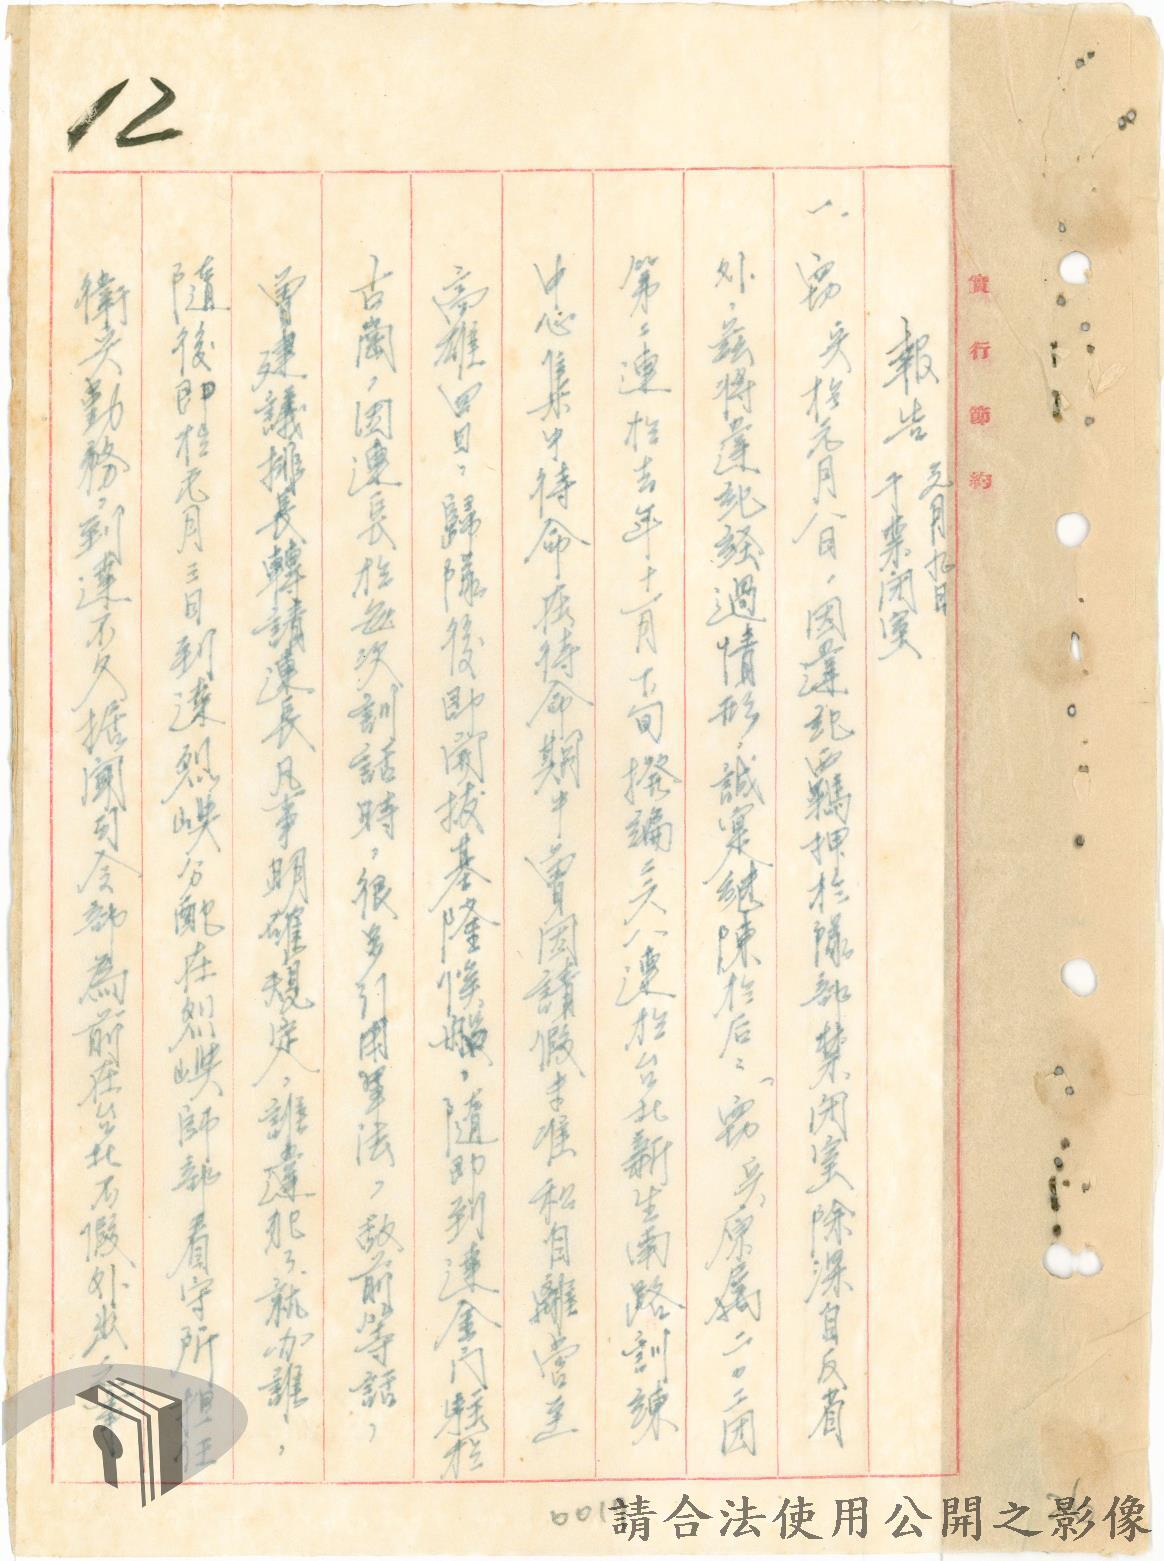 12
實行節約
報告 元月九日
于禁閉室
一、竊兵於元月八日，因違犯 羈押於隊部禁閉室除深自反省
外，茲將違犯經過情形，誠實 陳於后：「竊兵原屬二〇二团
第二連於去年十一月下旬撥編 八連於台北新生南路訓練
中心集中待命 待命期中曾因請假未准私自離营至
高雄四日，歸隊後即開拔基隆候艦，隨即到達金門 於
古崗，因連長於每次訓話時，很多引用軍法，敵前等話，
曾建議排長轉請連長凡事明確規定，誰違犯了就办誰，
隨後即於元月三日到達烈嶼分配在烈嶼師部看守所担任
衛兵勤務，到達不久據聞司令部為前在台北不假外出
001
請合法使用公開之影像